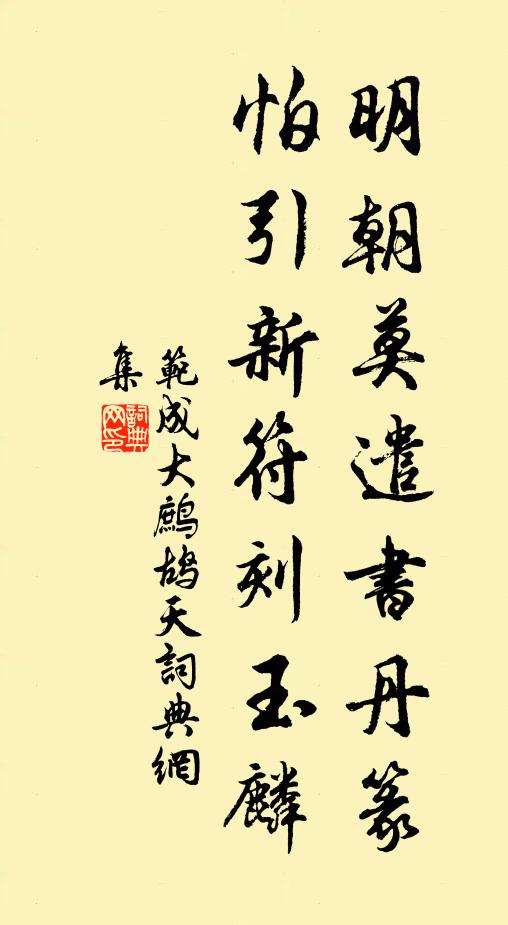 明朝莫遣書丹篆
怕引新符刻玉麟
範成大鷓鴣天詞典網
集
詞典網印